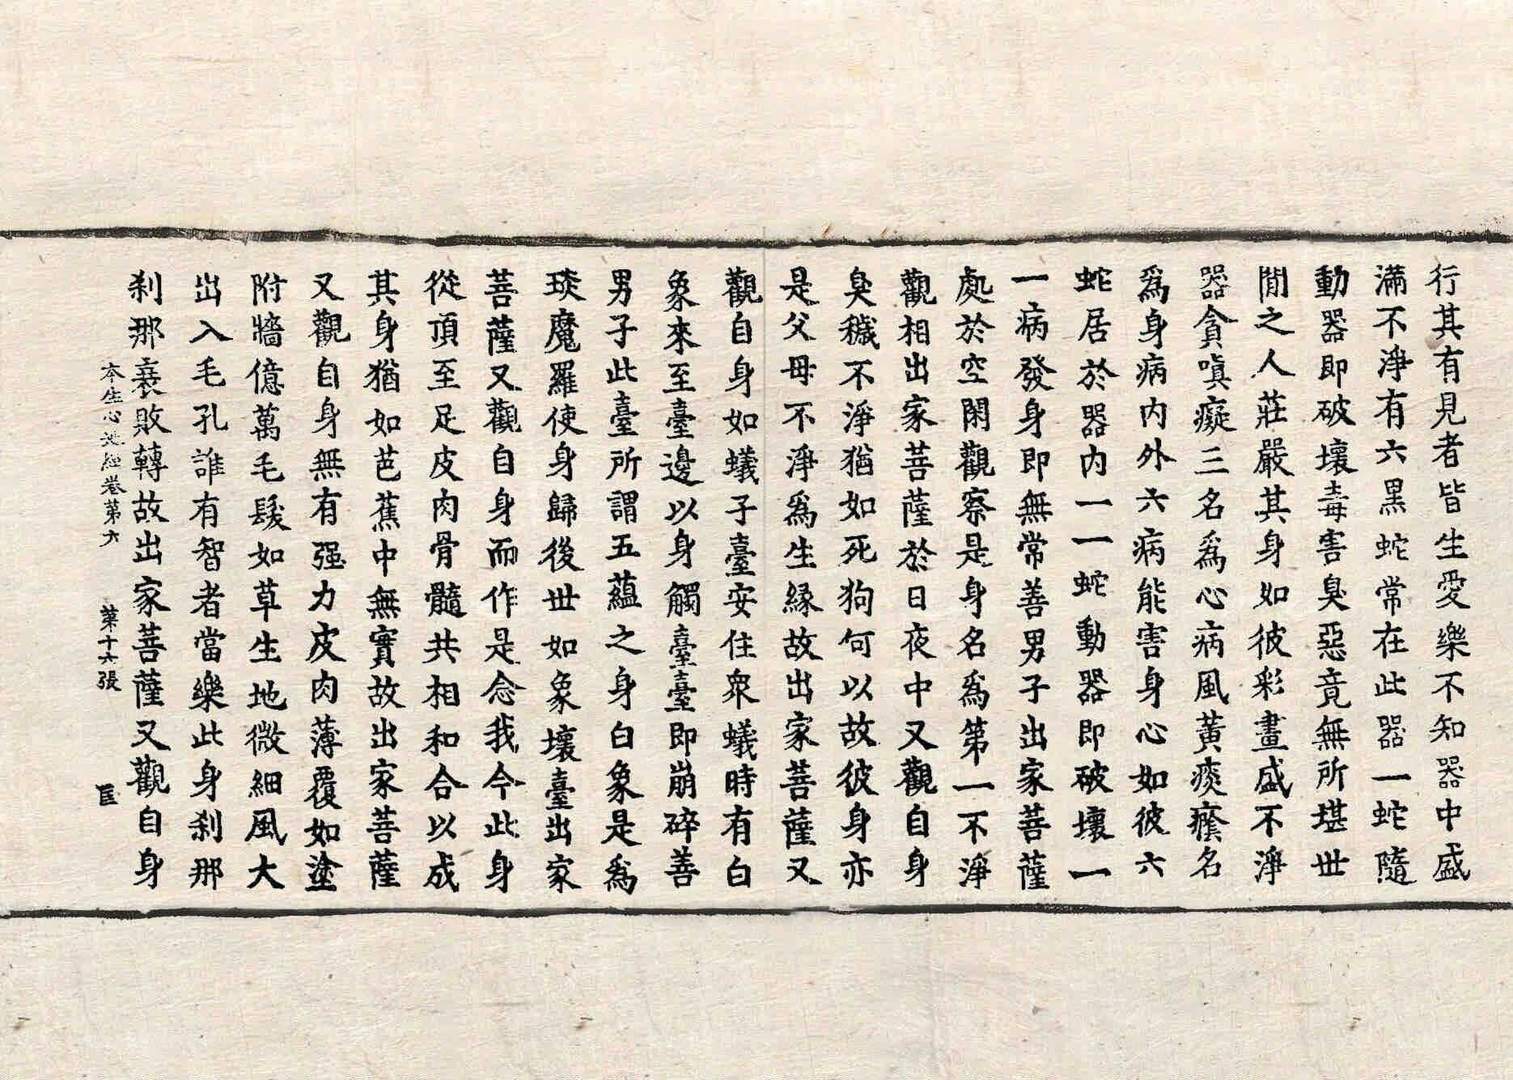 行其有見者皆生愛樂不知器中盛
滿不淨有六黑蛇常在此器一蛇隨
動器即破壞毒害臭惡竟無所堪世
閒之人莊嚴其身如彼彩畫盛不淨
器貪嗔癡三名爲心病風黃痰癊名
爲身病內外六病能害身心如彼六
蛇居於器內一一蛇動器即破壞一
一病發身即無常善男子出家菩薩
處於空閑觀察是身名爲第一不淨
觀相出家菩薩於日夜中又觀自身
臭穢不淨猶如死狗何以故彼身亦
是父母不淨爲生緣故出家菩薩又
觀自身如蟻子臺安住衆蟻時有白
象來至臺邊以身觸臺臺即崩碎善
男子此臺所謂五蘊之身白象是爲
琰魔羅使身歸後世如象壞臺出家
菩薩又觀自身而作是念我今此身
從頂至足皮肉骨髓共相和合以成
其身猶如芭蕉中無實故出家菩薩
又觀自身無有强力皮肉薄覆如塗
附牆億萬毛髮如草生地微細風大
出入毛孔誰有智者當樂此身剎那
剎那衰敗轉故出家菩薩又觀自身
本生心地經卷第六 第十六張 匡